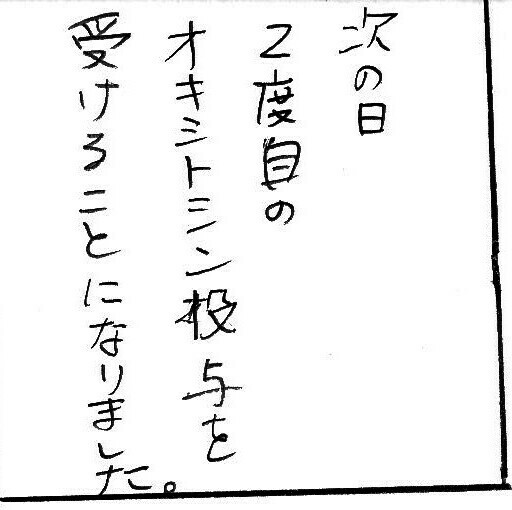 次の日
2度目の
オキシトシン投与を
受けることになりました。